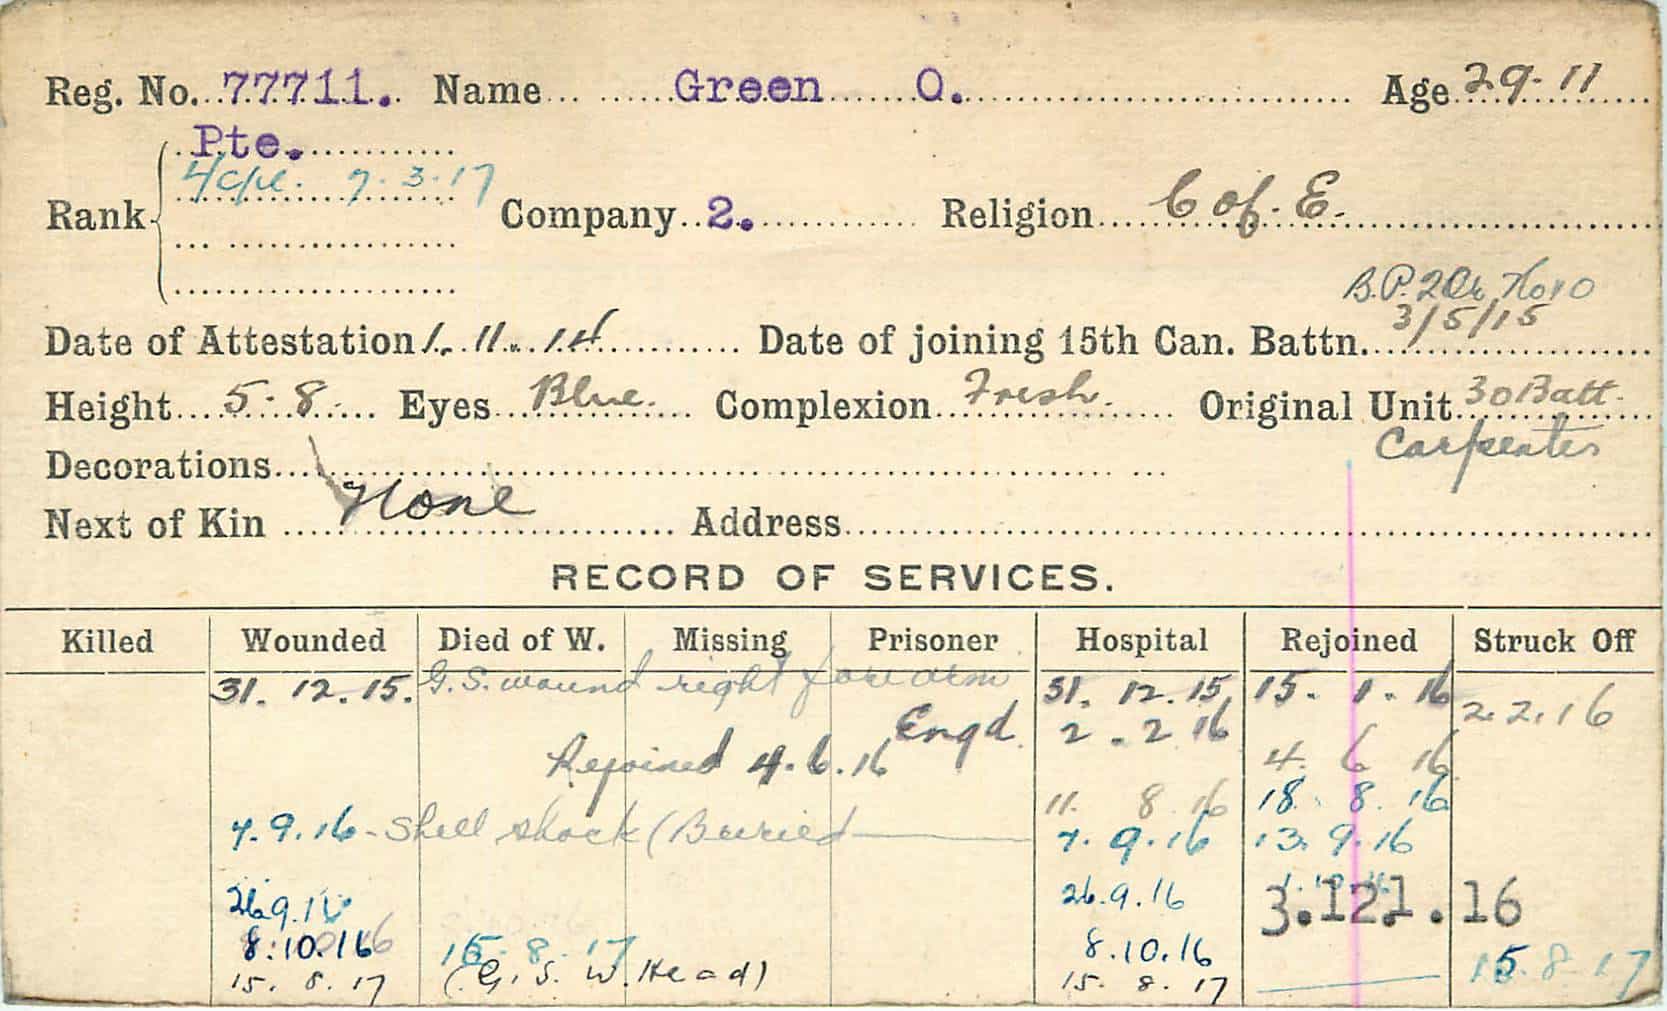 Reg. No. 77711. Name Green O. Age 29-11
Pte.
L/Cpl. 7.3.17
Rank Company 2. Religion C of E.
B.P. 2
Date of Attestation 1.11.14 Date of joining 15th Can. Battn. 3/5/15
Height 5-8 Eyes Blue. Complexion Fresh. Original Unit 30 Batt.
Carpenter
Decorations
Next of Kin None Address
RECORD OF SERVICES.
Killed Wounded Died of W. Missing Prisoner Hospital Rejoined Struck Off
31. 12. 15. G.S. wound right forearm 31. 12. 15. 15. 1. 16 2.2.16
Engd. 2.2 16
Rejoined 4.6.16 4. 6 16
11. 8 16 18. 8. 16
7.9.16 - Shell shock (Buried 7.9.16 13.9.16
26.9.16 26.9.16 3.121.16
8.10.16 15.8.17 8.10.16 15.8.17
15.8.17 (G.S.W. Head) 15.8.17